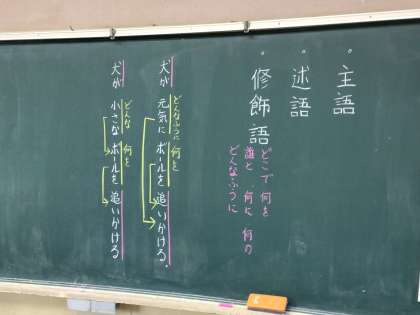 ・主語
・述語
・修飾語
どこで 何を
誰と 何に 何の
どんなふうに
どんなふうに 何を
犬が 元気に ボールを 追いかける。
どんな 何を
犬が 小さな ボールを 追いかける